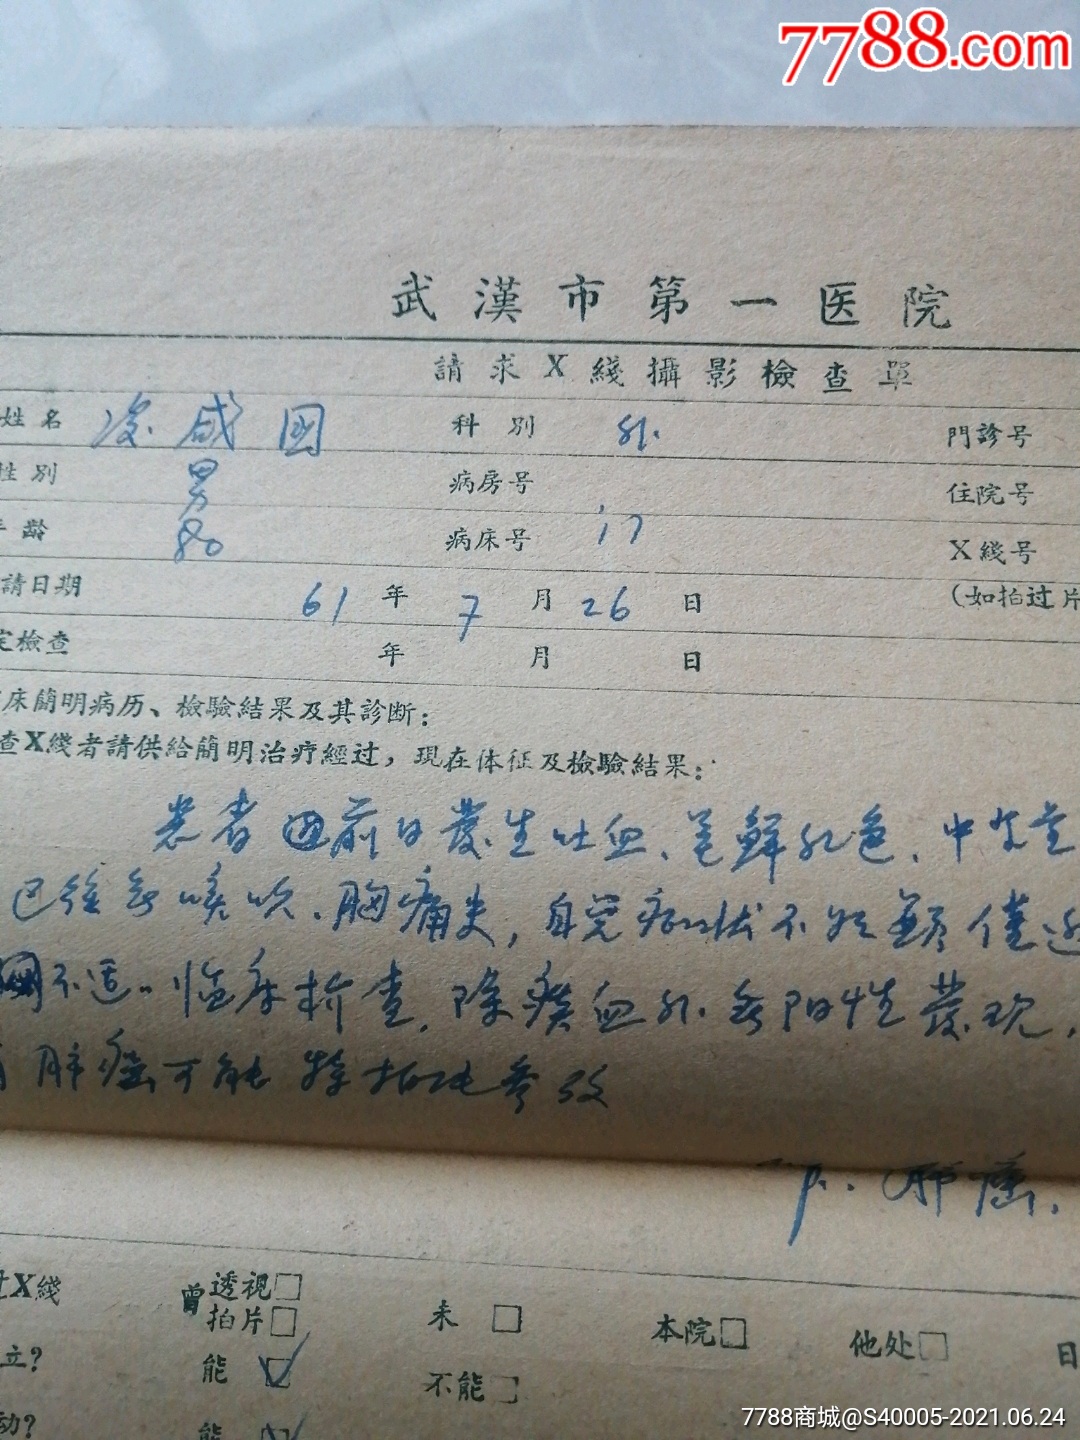 7788.com
武漢市第一医院
請求X綫攝影檢查單
姓名 凌咸國 科別 外. 門診号
性別 男 病房号 住院号
年齡 80 病床号 17 X綫号
請日期 61年7月26日 (如拍过片
定檢查 年 月 日
床簡明病历、檢驗結果及其診断:
查X綫者請供給簡明治疗經过，現在体征及檢驗結果:
患者 前日發生吐血、色鮮紅色、中等量
已後無咳嗽、胸痛史，自覺症状不明顯 僅
不适。临床检查，除痰血外無阳性發现，
肺癌可能 特拍片参攷
肺癌.
X綫 曾透視□
拍片□ 未□ 本院□ 他处□ 日
立? 能 不能□
动? 能
7788商城@S40005-2021.06.24